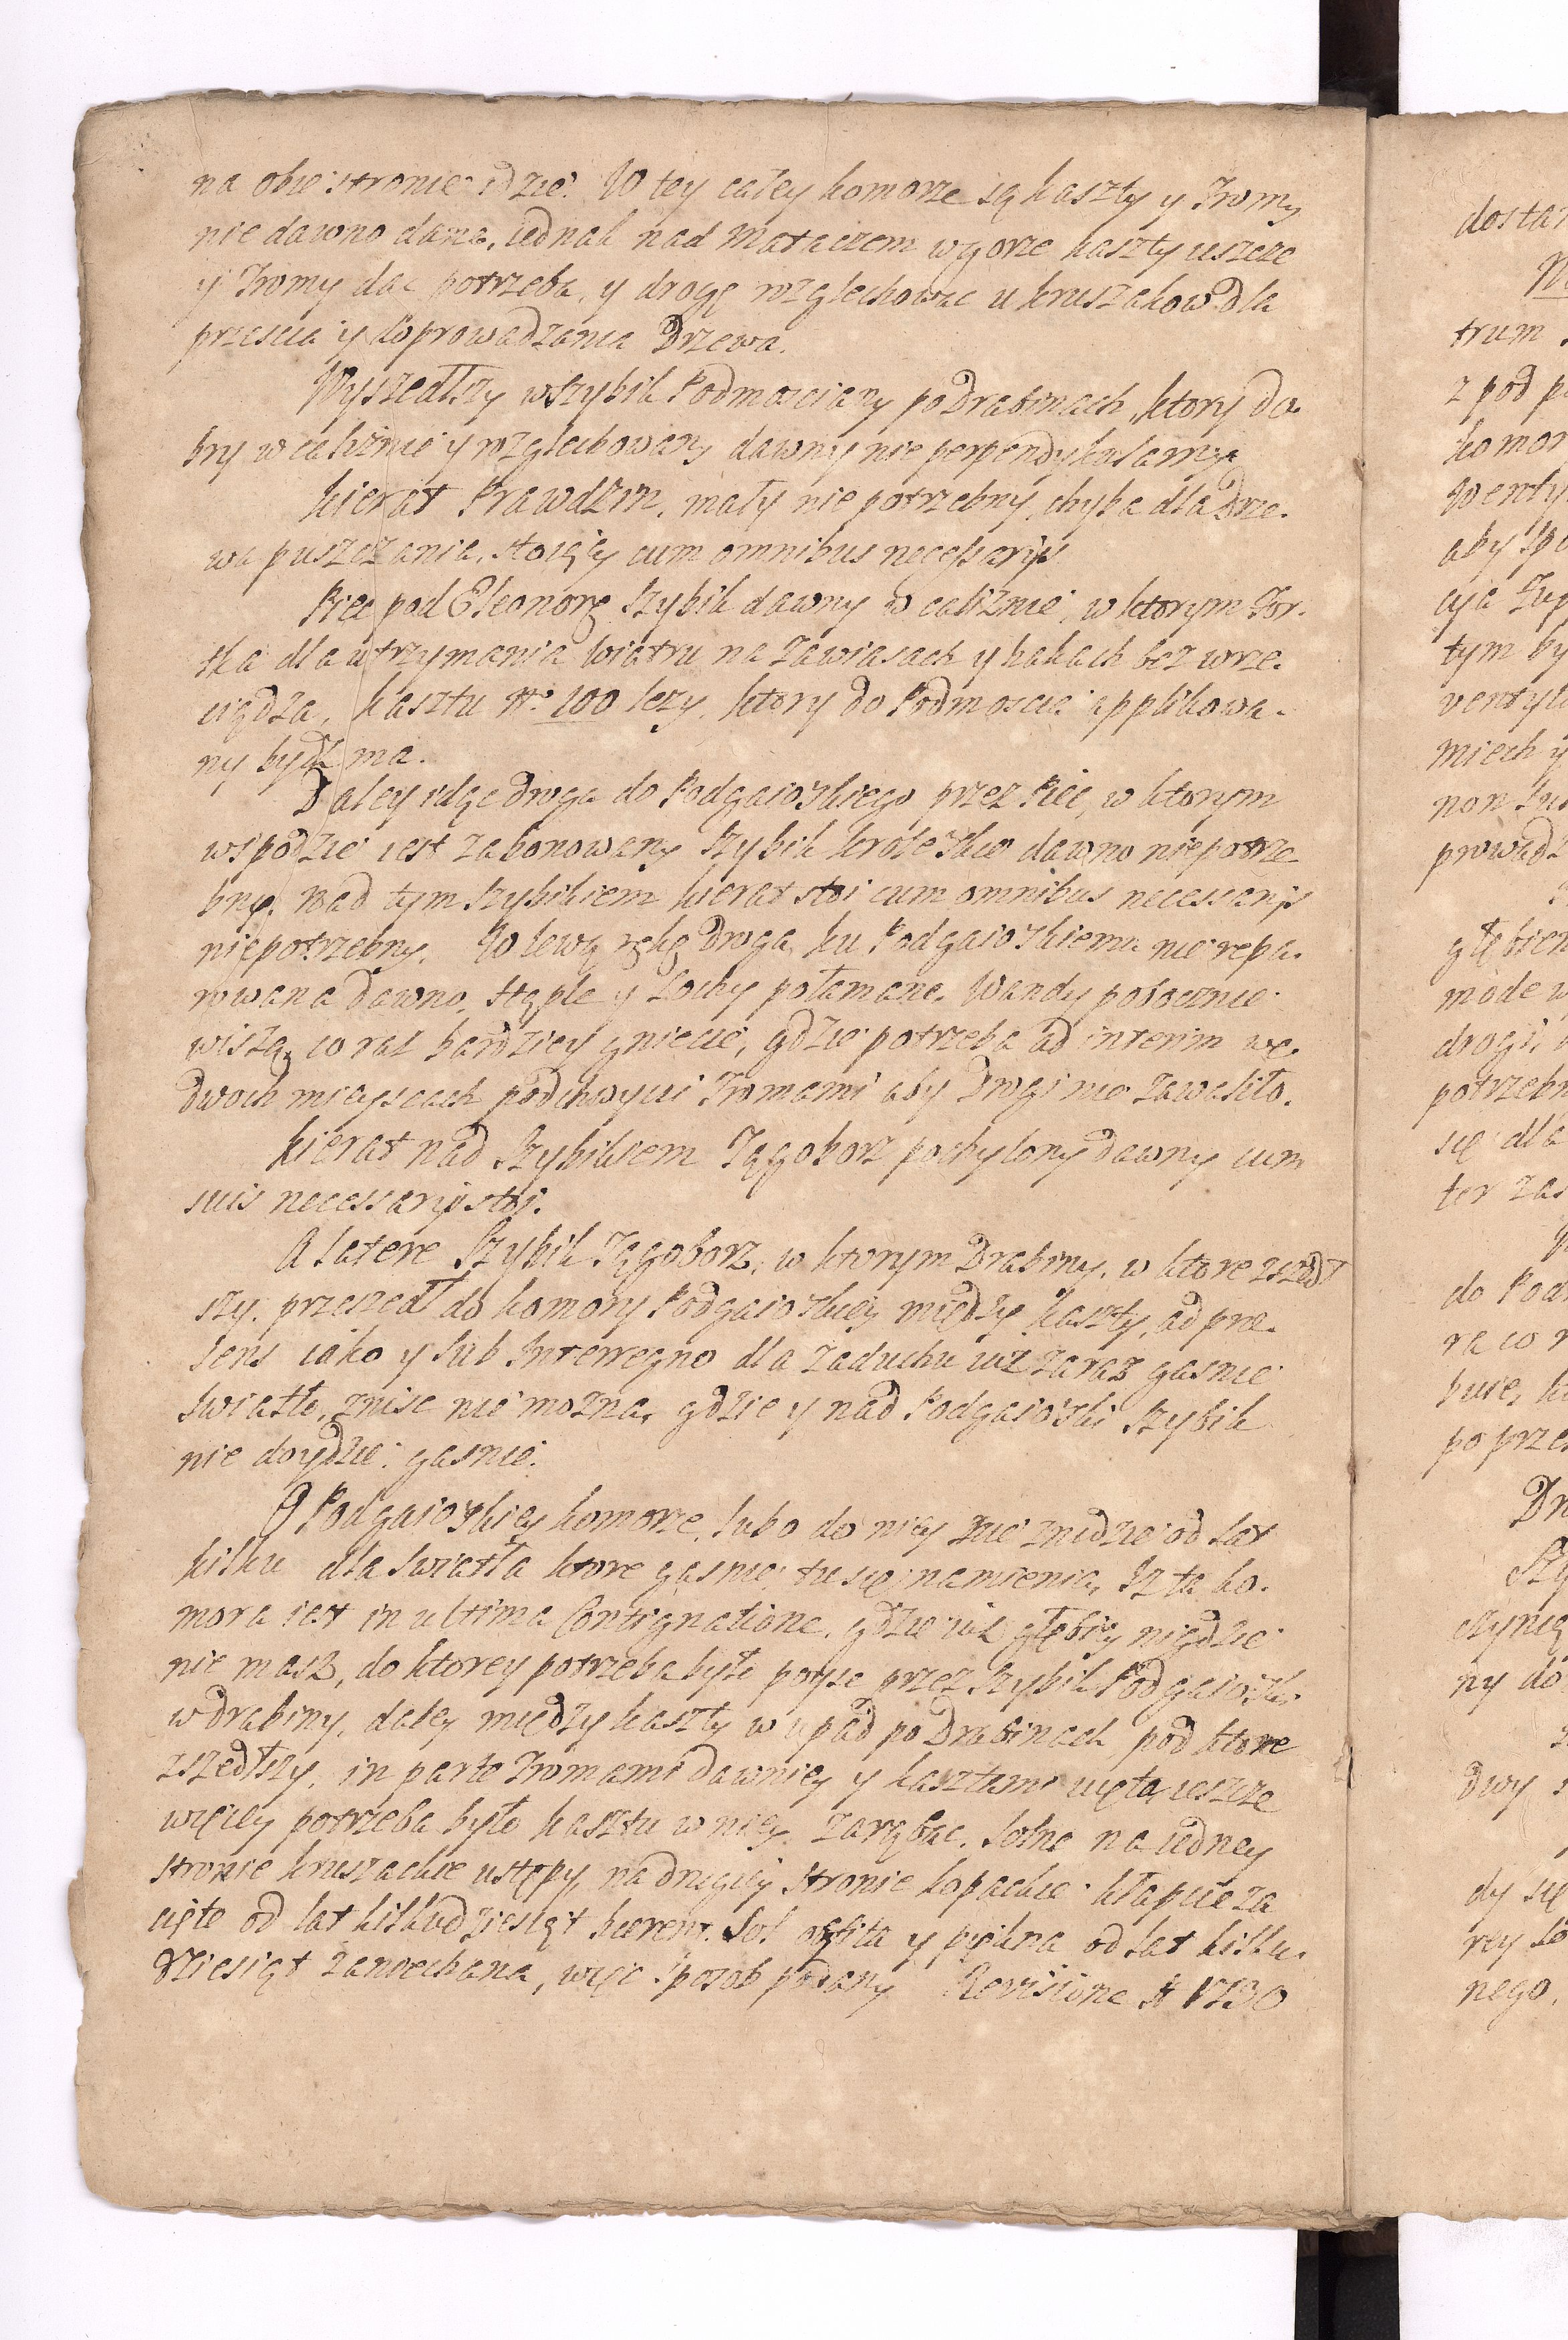 na obie stronie idzie. W tey całey komorze są kaszty y Tromy
nie dawno dane, iednak nad Mataczem w gorze kaszty ieszcze
y Tromy dac potrzeba, y drogę rozglechowac u kruszakow dla
przescia y doprowadzania Drzewa.
Wyszedłszy w Szybik Podmosciany po Drabinach, ktory do
bry w caliznie y rozglechowany dawny nie perpendykularny.
Kierat Prawdzin, mały nie potrzebny, chyba dla Drze.
wa puszczania, stoiący cum omnibus necessarijs
Piec pod Eleonorę Szybik dawny w caliznie, w ktorym For.
tka dla utrzymania wiatru na zawiasach y hakach bez wrze.
ciądza, kasztu No 100 lezy, ktory do Podmoscia applikowa.
ny bydz ma.
Daley idąc Droga do Podgaioskiego przez Piec, w ktorym
w spodzie iest zabonowany Szybik Krolewskie dawno niepotrze
bny. nad tym Szybikiem kierat stoi cum omnibus necessarijs
niepotrzebny. Po lewą rękę Droga ku Podgaioskiemu nie repa.
rowana dawno, stęple y Sochy połamane. Wandy pobocznie
wiszą, co raz bardziey gniecie, gdzie potrzeba ad interim we
dwoch mieyscach podchwycic Tromami aby Drogi nie zawaliło.
Kierat nad Szybikiem Tągoborz pochylony dawny cum
suis necessarijs stoi.
A latere Szybik Tągoborz, w ktorym Drabiny, w ktore zszedł
szy, przeszedł do komory Podgaioskiey między kaszty, ad prae.
sens iako y sub Interregno dla zaduchu iuz zaraz gasnie
swiatło, znisc nie mozna, gdzie y nad Podgaioski Szybik
nie doydzie: gasnie.
O Podgaioskiey komorze, lubo do niey nie znidzie od lat
kilku dla swiatła ktore gasnie, tu się namienia, Iz ta ko.
mora iest in ultima Contignatione, gdzie iuz głębiey nigdzie
nie masz, do ktorey potrzeba było poysc przez Szybik Podgaioski
w drabiny, daley między kaszty w upad po Drabinach, pod ktore
zszedłszy, in parte Tromami dawniey y kasztami uięta, ieszcze
więcey potrzeba było kasztu w niey zarąbac. Solne na iedney
stronie kruszackie ustępy, na drugiey stronie kopackie kłapcie za
cięte od lat kilkudziesiąt haerent. Sol obfita y piękna od lat kilku.
dziesiąt zaniechana, więc sposob podany Revisione A 1730